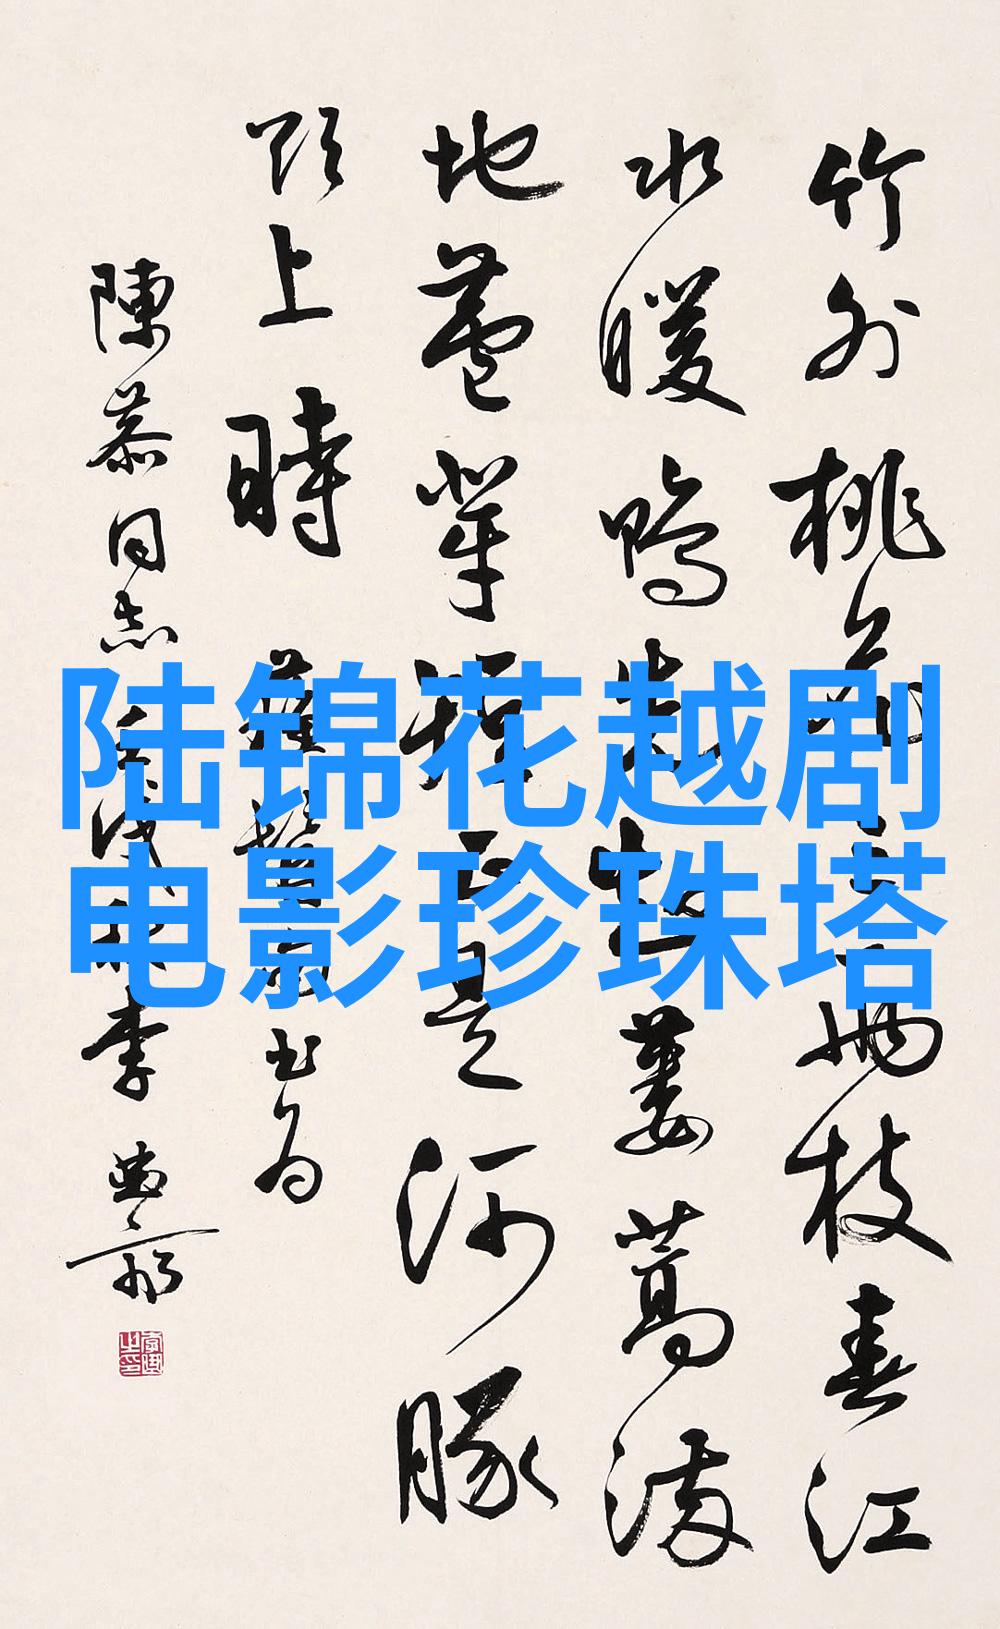 陆锦花越剧
电影珍珠塔
竹外桃花三兩枝春江
水暖鴨先知蔞蒿滿
地蘆芽短正是河豚
欲上時 蘇 書為
陳 同志 李